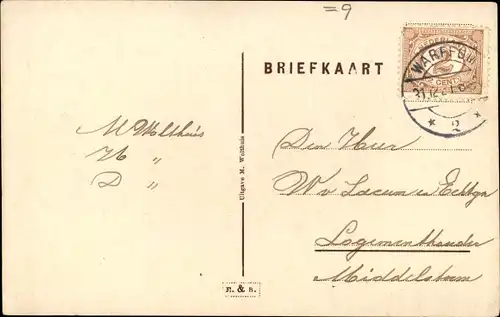 =9
BRIEFKAART
NEDERLAND
CENT
WARFFUM
31.12
2
M Wolthuis
H „
D „
Uitgave M. Wolthuis
Den Heer
W v Lacum en Echtgn
Logementhouder
Middelstum
R. & S.